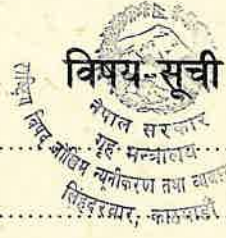 विषय-सूची
नेपाल सरकार
गृह मन्त्रालय
विपद् जोखिम न्यूनीकरण तथा व्यवस्थापन
सिंहदरबार, काठमाडौं